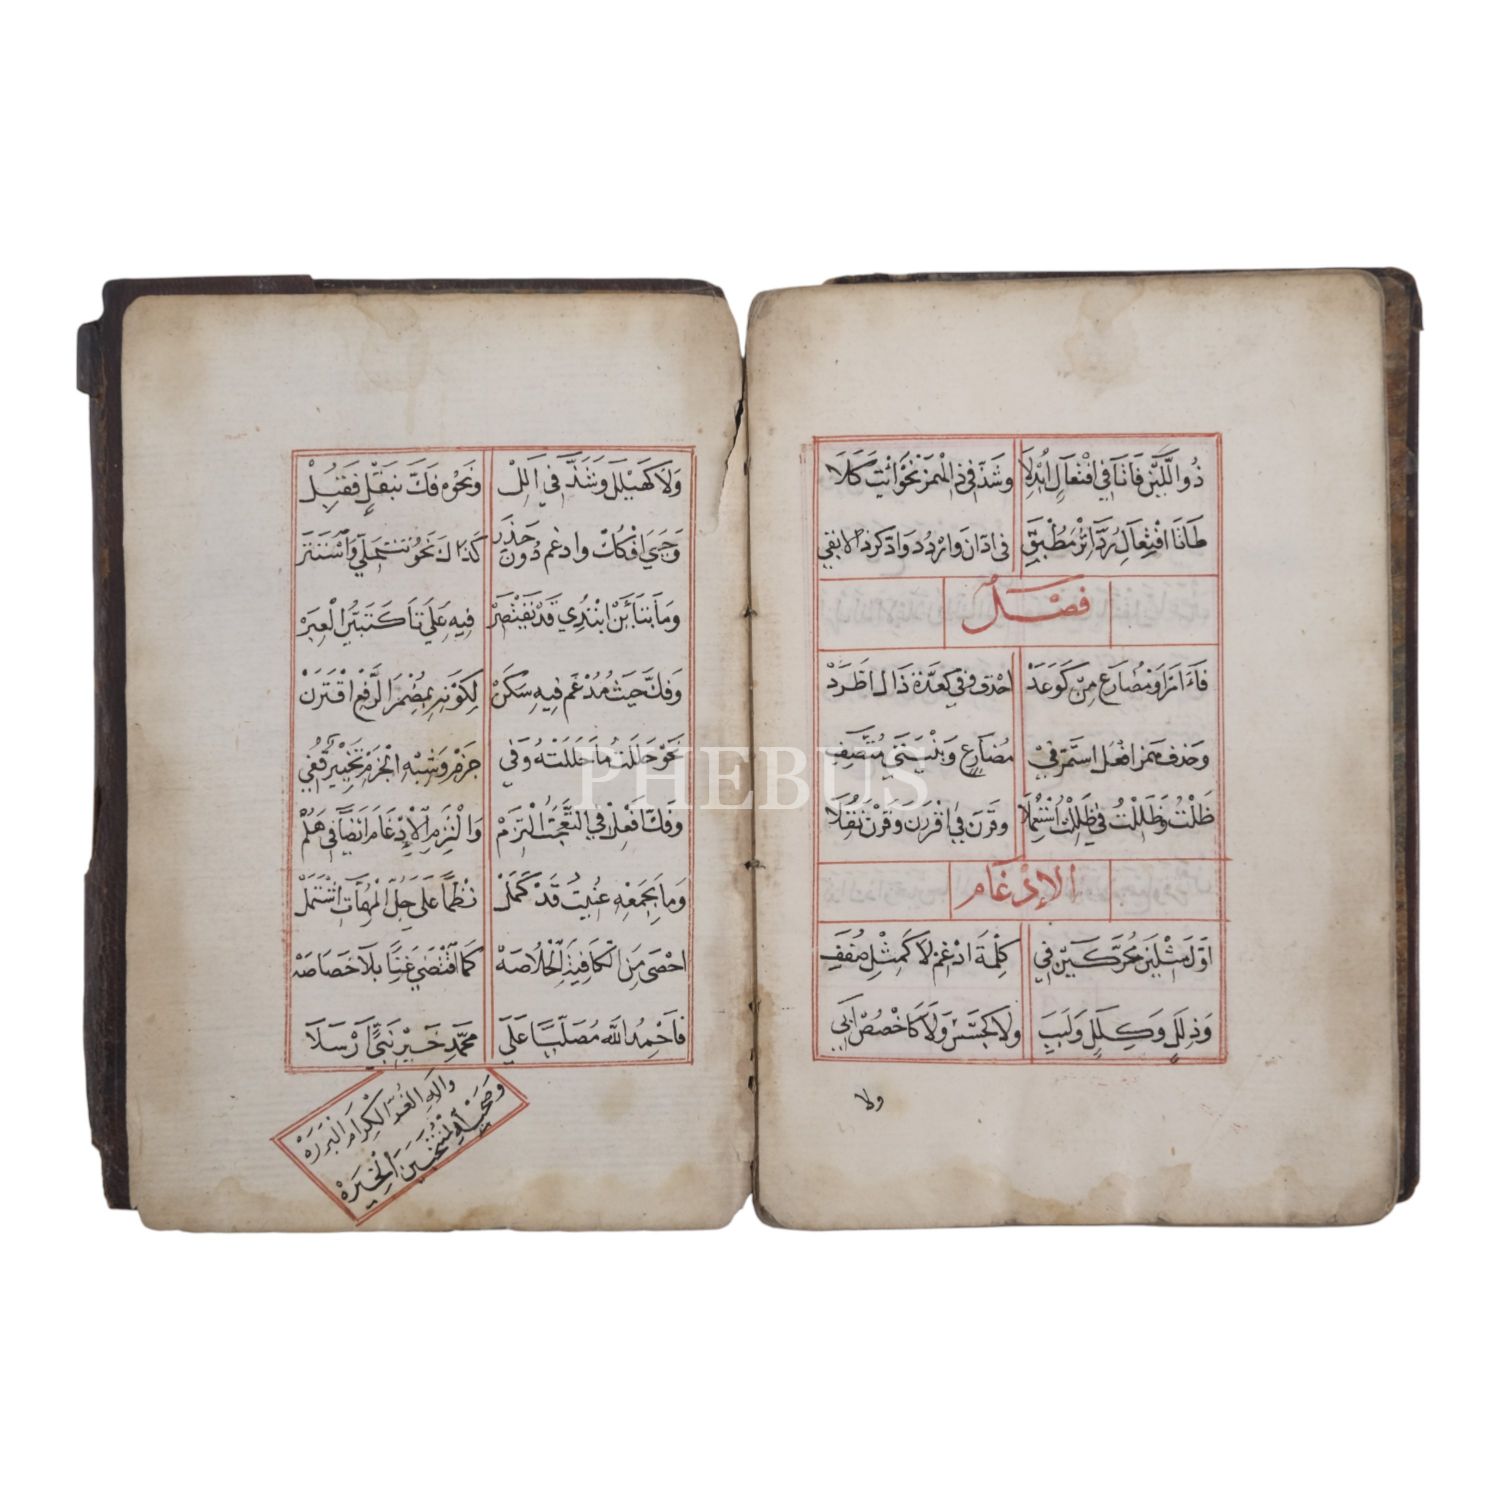 ذُو اللَّيْنِ فَاتَا فِي افْتِعَالٍ اُبْدِلَا وَشَذَّ فِي ذِي الْهَمْزِ نَحْوُ ائْتَكَلَا
طَاتَا افْتِعَالٍ رُدَّ اثْرَ مُطْبَقِ فى ادّان وازدد وادكر دالا بقي
فَصْلٌ
فَاءَ امْرٍ او مُضَارِعٍ مِنْ كَوَعَدْ احْذِفْ وَفِي كَعِدَةٍ ذَاكَ اطَّرَدْ
وَحَذْفُ هَمْزِ افْعَلَ اسْتَمَرَّ فِي مُضَارِعٍ وَبِنْيَتَيْ مُتَّصِفِ
ظَلْتُ وَظِلْتُ فِي ظَلِلْتُ اسْتُعْمِلَا وَقِرْنَ فِي اقْرِرْنَ وَقَرْنَ نُقِلَا
الْإِدْغَام
اوّلَ مِثْلَيْنِ مُحَرَّكَيْنِ فِي كِلْمَةٍ ادْغِمْ لَا كَمِثْلِ صُفَفِ
وَذُلُلٍ وَكِلَلٍ وَلَبَبِ وَلَا كَجُسَّسٍ وَلَا كَاخْصُصَ ابِي
ولا
وَلَا كَهَيْلَلٍ وَشَذَّ فِي اَلِلْ وَنَحْوِهِ فَكٌّ بِنَقْلٍ فَقُبِلْ
وَحَيِيَ افْكُكْ وادغم دُونَ حَذَرْ كَذَاكَ نَحْوُ تَتَجَلَّى وَاسْتَتَرْ
وَمَا بِتَاءَيْنِ ابْتُدِي قَدْ يُقْتَصَرْ فِيهِ عَلَى تَا كَتَبَيَّنُ الْعِبَرْ
وَفُكَّ حَيْثُ مُدْغَمٌ فِيهِ سَكَنْ لِكَوْنِهِ بِمُضْمَرِ الرَّفْعِ اقْتَرَنْ
نَحْوُ حَلَلْتُ مَا حَلَلْتَهُ وَفِي جَزْمٍ وَشِبْهِ الْجَزْمِ تَخْيِيرٌ قُفِي
وَفَكُّ افْعِلْ فِي التَّعَجُّبِ الْتُزِمْ وَالْتُزِمَ الْإِدْغَامُ ايْضًا فِي هَلُمْ
وَمَا بِجَمْعِهِ عُنِيتُ قَدْ كَمَلْ نَظْمًا عَلَى جُلِّ الْمُهِمَّاتِ اشْتَمَلْ
احْصَى مِنَ الْكَافِيَةِ الْخُلَاصَهْ كَمَا اقْتَضَى غِنًا بِلَا خَصَاصَهْ
فَاَحْمَدُ اللَّهَ مُصَلِّيًا عَلَى مُحَمَّدٍ خَيْرِ نَبِيٍّ اُرْسِلَا
وَالِهِ الْغُرِّ الْكِرَامِ الْبَرَرَهْ
وَصَحْبِهِ الْمُنْتَخَبِينَ الْخِيَرَهْ
PHEBUS